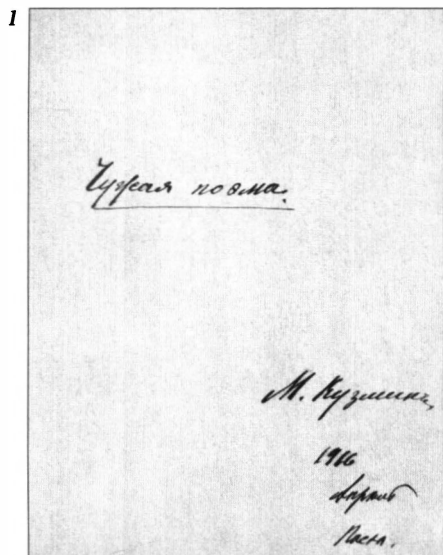 1
Чужая поэма.
М. Кузминъ,
1916
Апрѣль
Пасха.